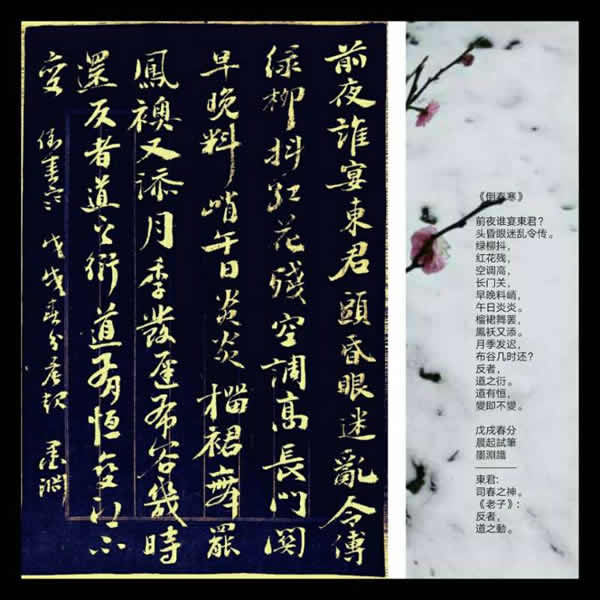 前夜誰宴東君頭昏眼迷亂令傳
绿柳抖红花殘空調高長門関
早晚料峭午日炎炎榴裙舞罷
鳳襖又添月季發遲布谷幾時
還反者道之衍道有恒變即不
變 倒春寒 戊戌春分晨起 墨淵
《倒春寒》
前夜谁宴東君？
头昏眼迷乱令传。
绿柳抖，
紅花残，
空调高，
长门关，
早晚料峭，
午日炎炎。
榴裙舞罢，
鳳袄又添。
月季发迟，
布谷几时还？
反者，
道之衍。
道有恒，
變即不變。
戊戌春分
晨起試筆
墨淵識
東君：
司春之神。
《老子》：
反者，
道之動。